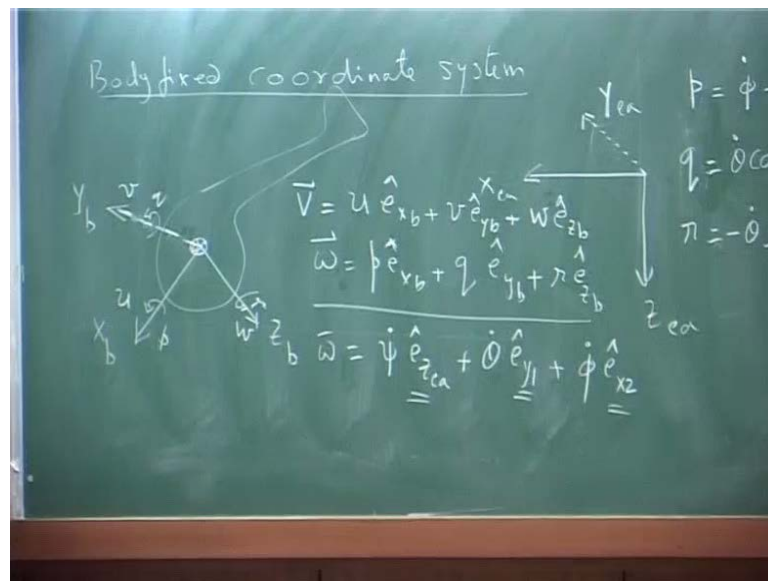 Bodyfixed coordinate system
Y_b v q
u X_b p
w r Z_b
\vec{V} = u ê_{xb} + v ê_{yb} + w ê_{zb}
\vec{ω} = p ê_{xb} + q ê_{yb} + r ê_{zb}
\bar{ω} = ψ̇ ê_{z_{ea}} + θ̇ ê_{y1} + φ̇ ê_{x2}
Y_{ea}
X_{ea}
Z_{ea}
p = φ̇ -
q = θ̇ co
r = -θ̇